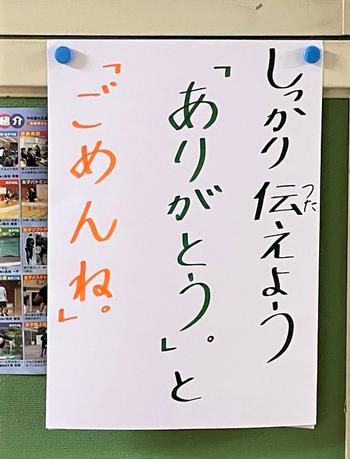 しっかり伝えよう
つた
「ありがとう。」と
「ごめんね。」
紹介